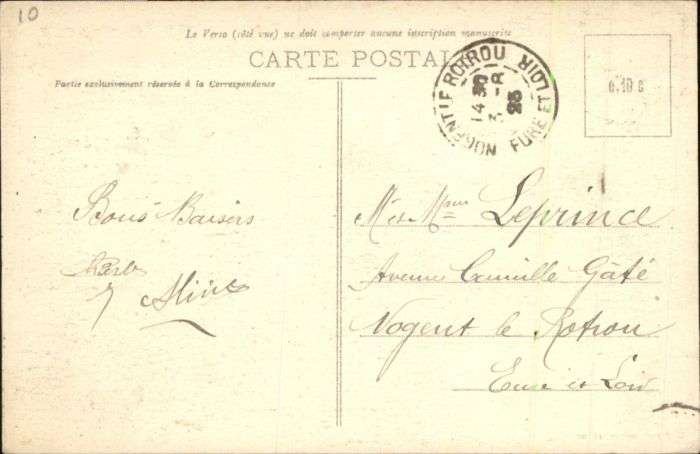 10
Le Verso (côté vue) ne doit comporter aucune inscription manuscrite
CARTE POSTALE
Partie exclusivement réservée à la Correspondance
NOGENT LE ROTROU
EURE ET LOIR
14 30
3 -8
25
Bons Baisers
Aline
Leprince
Avenue Camille Gâté
Nogent le Rotrou
Eure et Loir